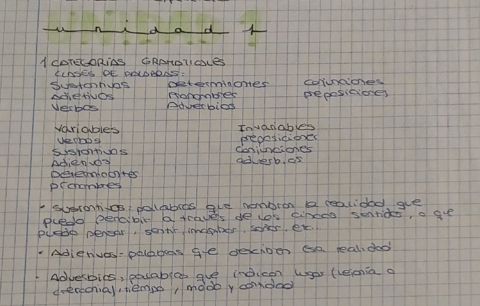 unidad 1
1 CATEGORÍAS GRAMATICALES
CLASES DE PALABRAS:
Sustantivos Determinantes Conjunciones
Adjetivos Pronombres preposiciones
Verbos Adverbios
Variables Invariables
Verbos preposiciones
Sustantivos Conjunciones
Adjetivos adverbios
Determinantes
pronombres
• Sustantivos: palabras que nombran la realidad que
puedo percibir a través de los cinco sentidos, o que
puedo pensar, sentir, imaginar, soñar, etc.
• Adjetivos: palabras que describen esa realidad
• Adverbios: palabras que indican lugar (lejanía o
cercanía), tiempo, modo y cantidad